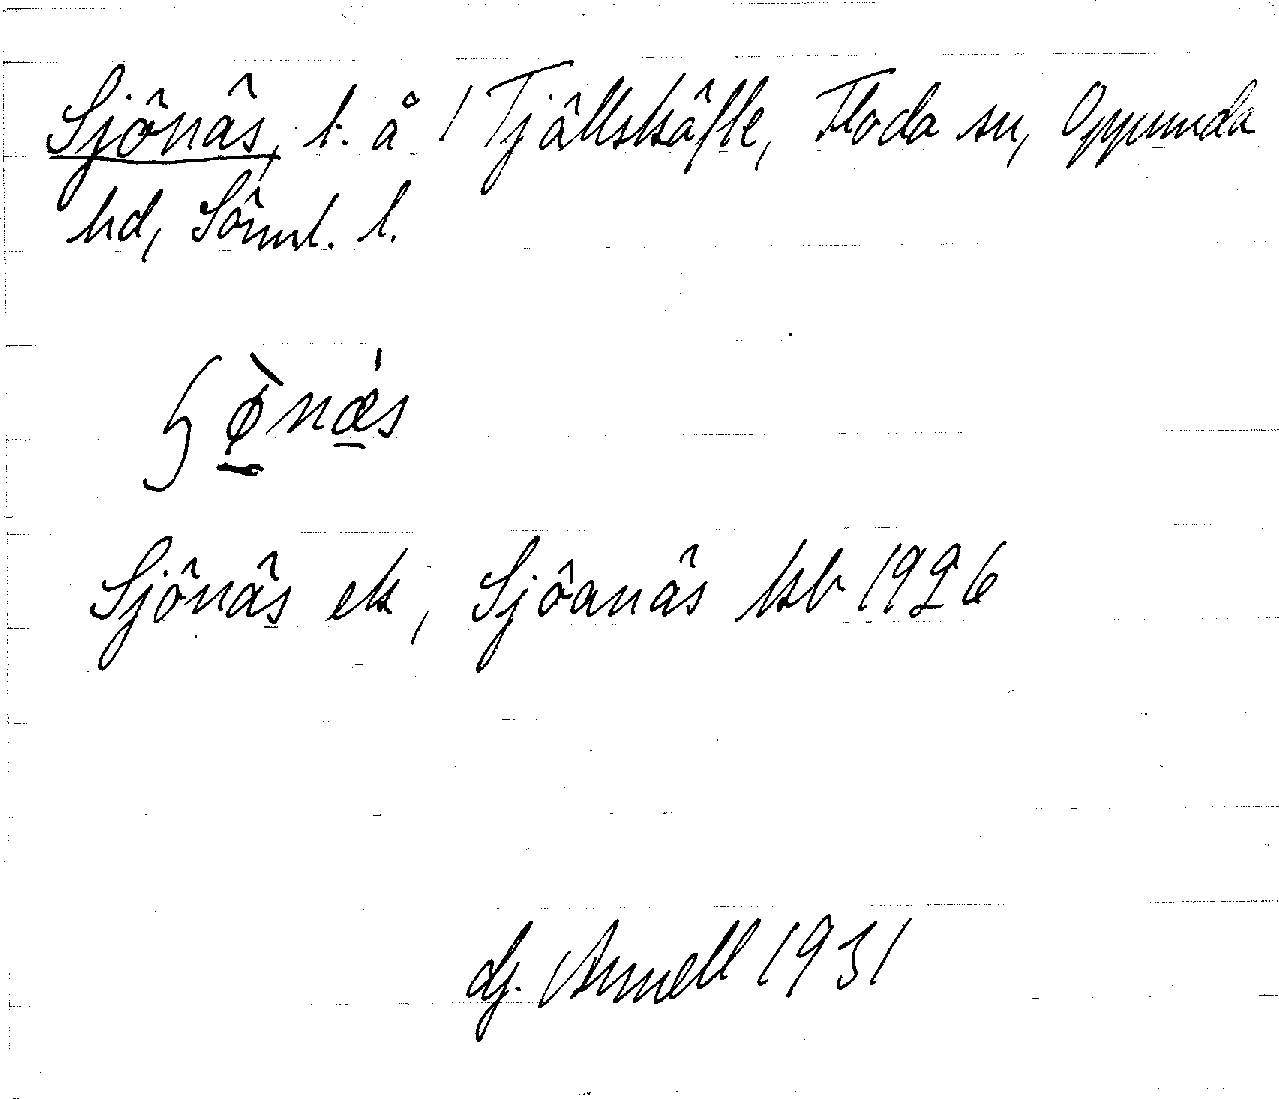 Sjönäs, t. å 1 Tjällskäfte, Floda sn, Oppunda
hd, Söml. l.
ʃö̀næ̀s
Sjönäs ek, Sjöanäs kb 1926
dj. Arnell 1931